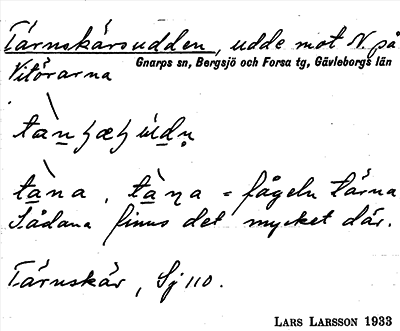 Tärnskärsudden, udde mot N på
Gnarps sn, Bergsjö och Forsa tg, Gävleborgs län
Vitörarna
= fågeln tärna
Sådana finns det mycket där.
Tärnskär, Sj 110.
LARS LARSSON 1933